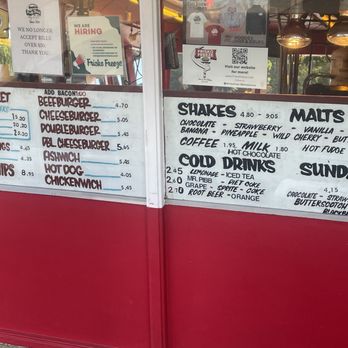 WE NO LONGER
ACCEPT BILLS
THANK YOU
WE ARE
HIRING
Frisko Freeze
Visit our website
for more!
ET
ADD BACON
BEEFBURGER 4.70
CHEESEBURGER 5.45
DOUBLEBURGER 5.45
DBL CHEESEBURGER
FISHWICH 5.45
HOT DOG 4.45
CHICKENWICH 5.45
8.95
SHAKES 4.80 - 5.05 MALTS
CHOCOLATE - STRAWBERRY - VANILLA -
BANANA - PINEAPPLE - WILD CHERRY - BUT
COFFEE 1.95 MILK 1.80 HOT FUDGE
HOT CHOCOLATE
COLD DRINKS SUND
LEMONADE - ICED TEA
MR. PIBB - DIET COKE
GRAPE - SPRITE - COKE
ROOT BEER - ORANGE
4.15
CHOCOLATE - STRAW
BUTTERSCOTCH
BLACKB